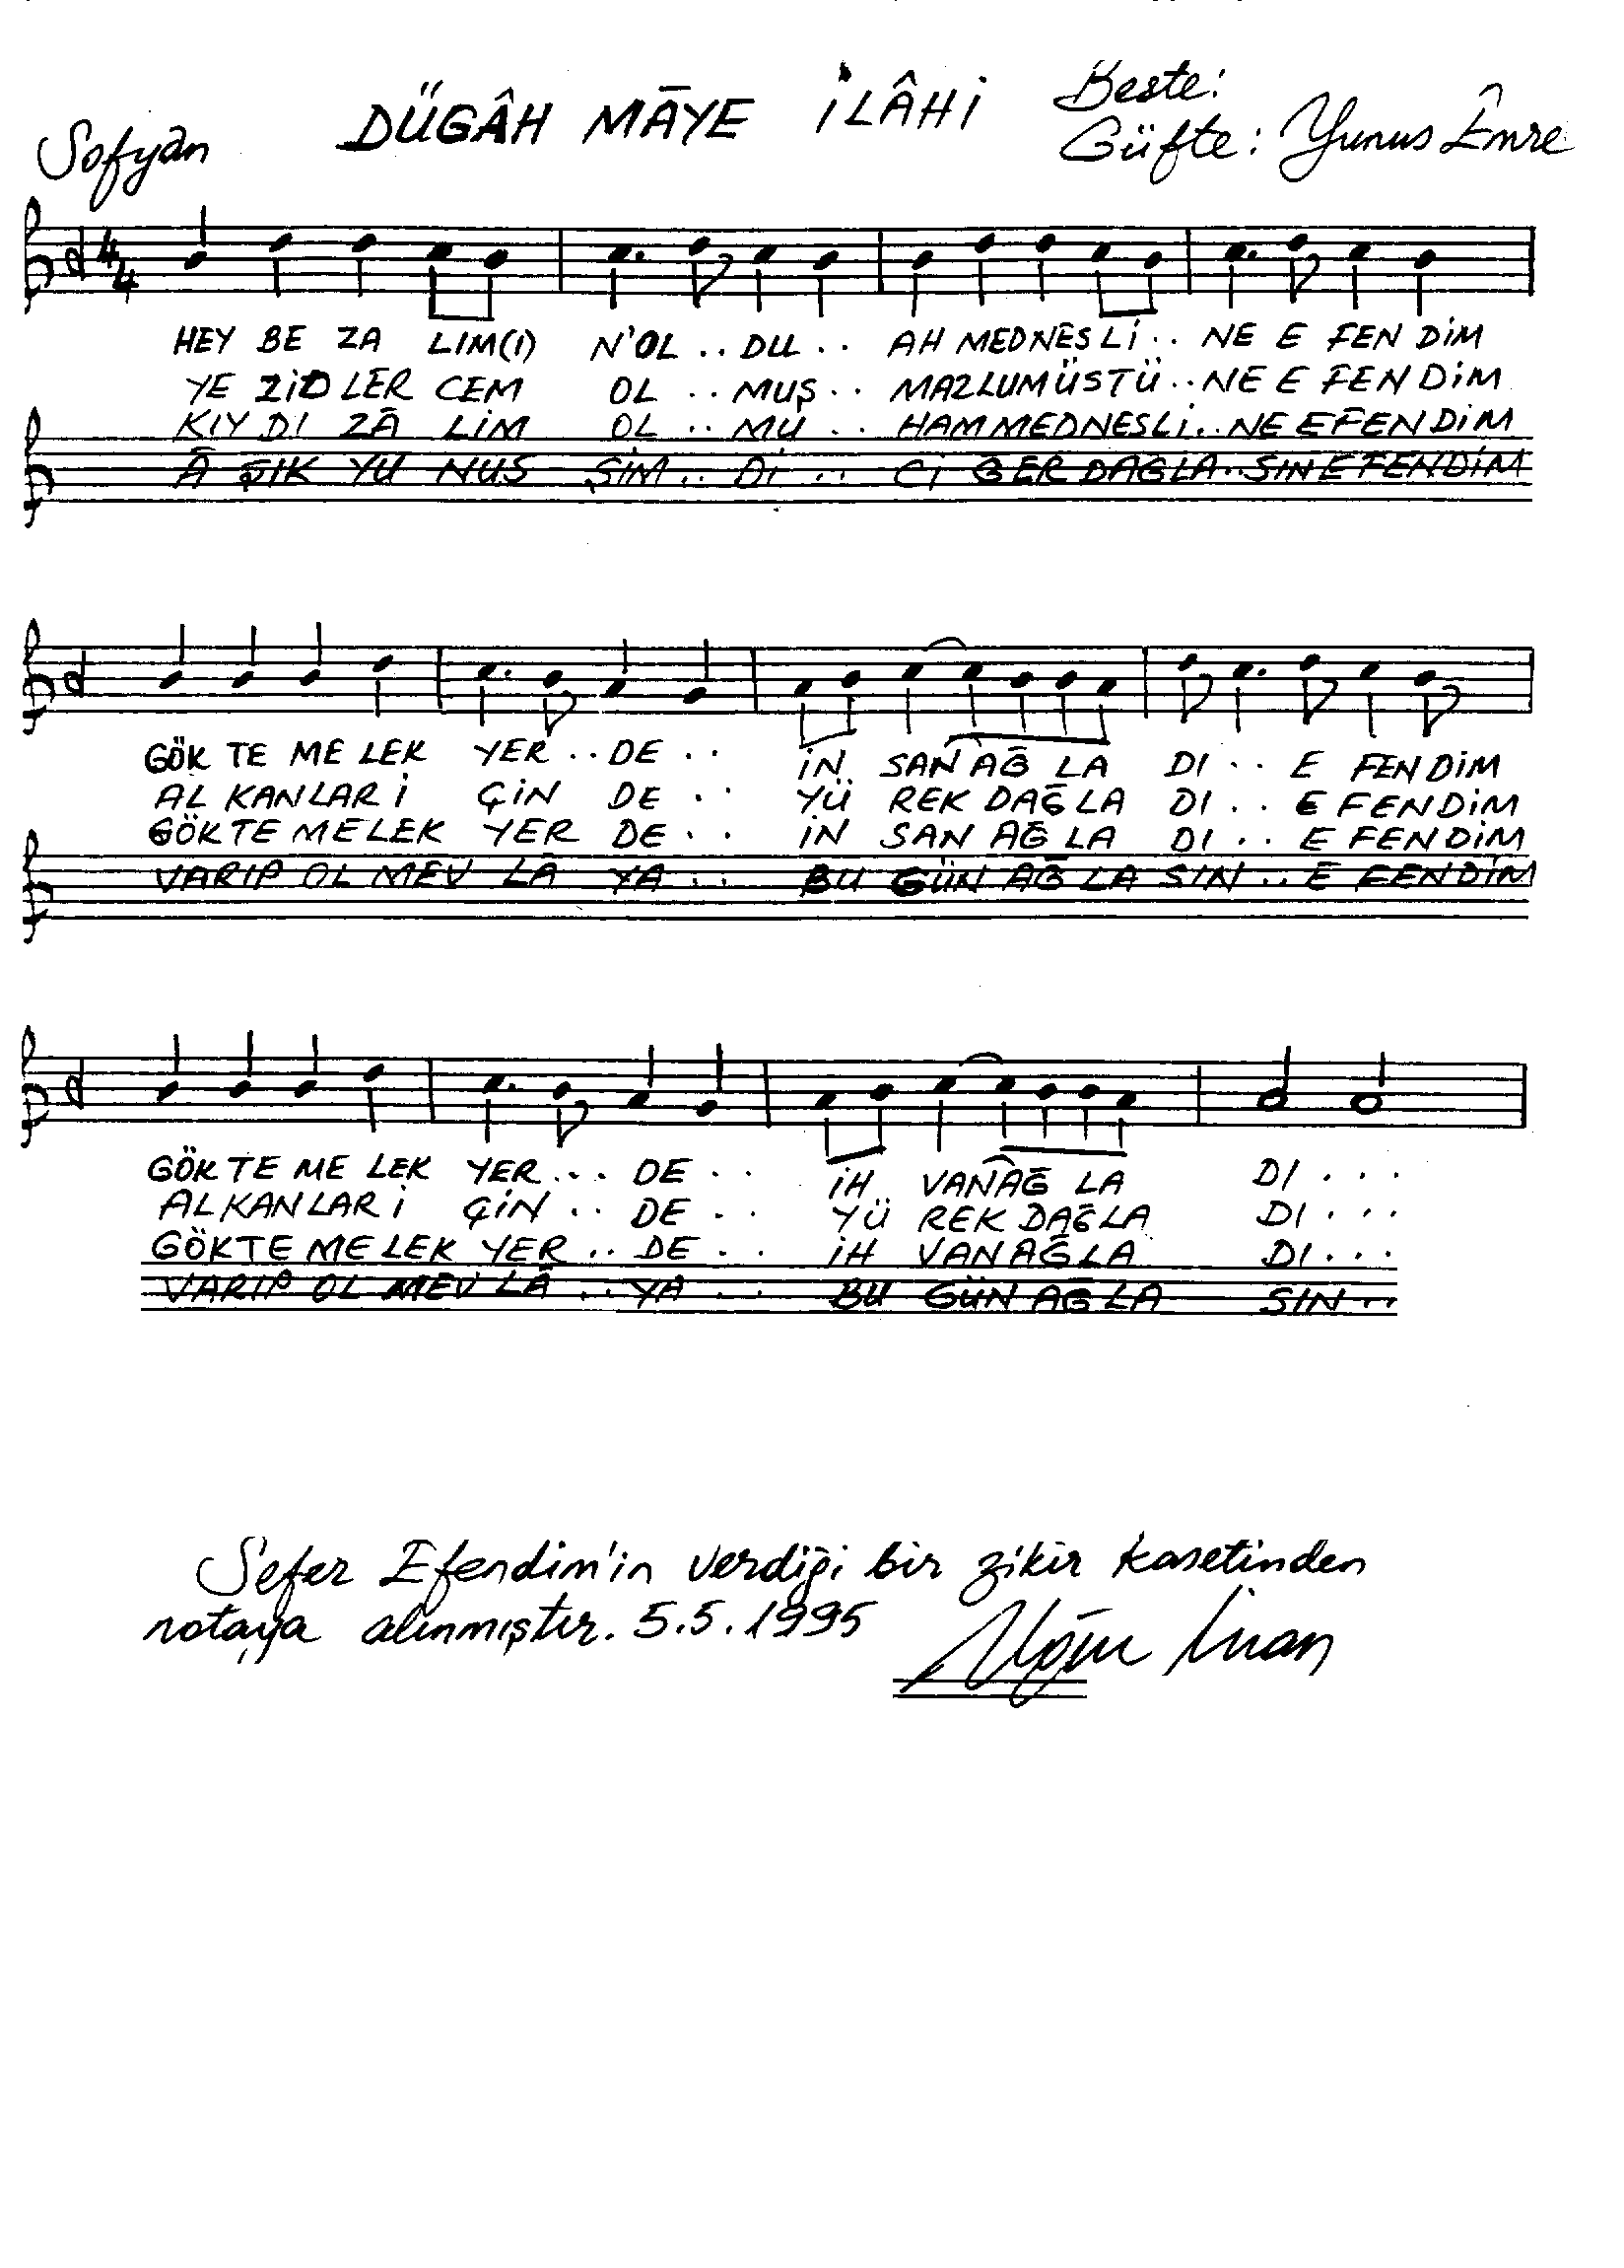 Sofyan
DÜGÂH MĀYE İLÂHİ
Beste:
Güfte: Yunus Emre
4
4
HEY BE ZA LIM(I) N'OL .. DU .. AH MEDNESLİ .. NE E FEN DİM
YE ZİD LER CEM OL .. MUŞ .. MAZLUMÜSTÜ .. NE E FEN DİM
KIY DI ZĀ LİM OL .. MU .. HAM MEDNESLİ .. NE EFENDİM
Ā ŞIK YU NUS ŞİM .. Dİ .. Cİ ĞER DAĞLA .. SIN EFENDİM
GÖK TE ME LEK YER .. DE .. İN SAN AĞ LA DI .. E FENDİM
AL KANLAR İ ÇİN DE .. YÜ REK DAĞLA DI .. E FENDİM
GÖKTE MELEK YER DE .. İN SAN AĞ LA DI .. E FENDİM
VARIP OL MEV LĀ YA .. BU GÜN AĞ LA SIN .. E FENDİM
GÖK TE ME LEK YER ... DE .. İH VAN AĞ LA DI ...
AL KANLAR İ ÇİN .. DE .. YÜ REK DAĞLA DI ...
GÖKTE MELEK YER .. DE .. İH VAN AĞ LA DI ...
VARIP OL MEV LĀ .. YA .. BU GÜN AĞ LA SIN ..
Sefer Efendim'in verdiği bir zikir kasetinden
notaya alınmıştır. 5.5.1995 Uğur İnan